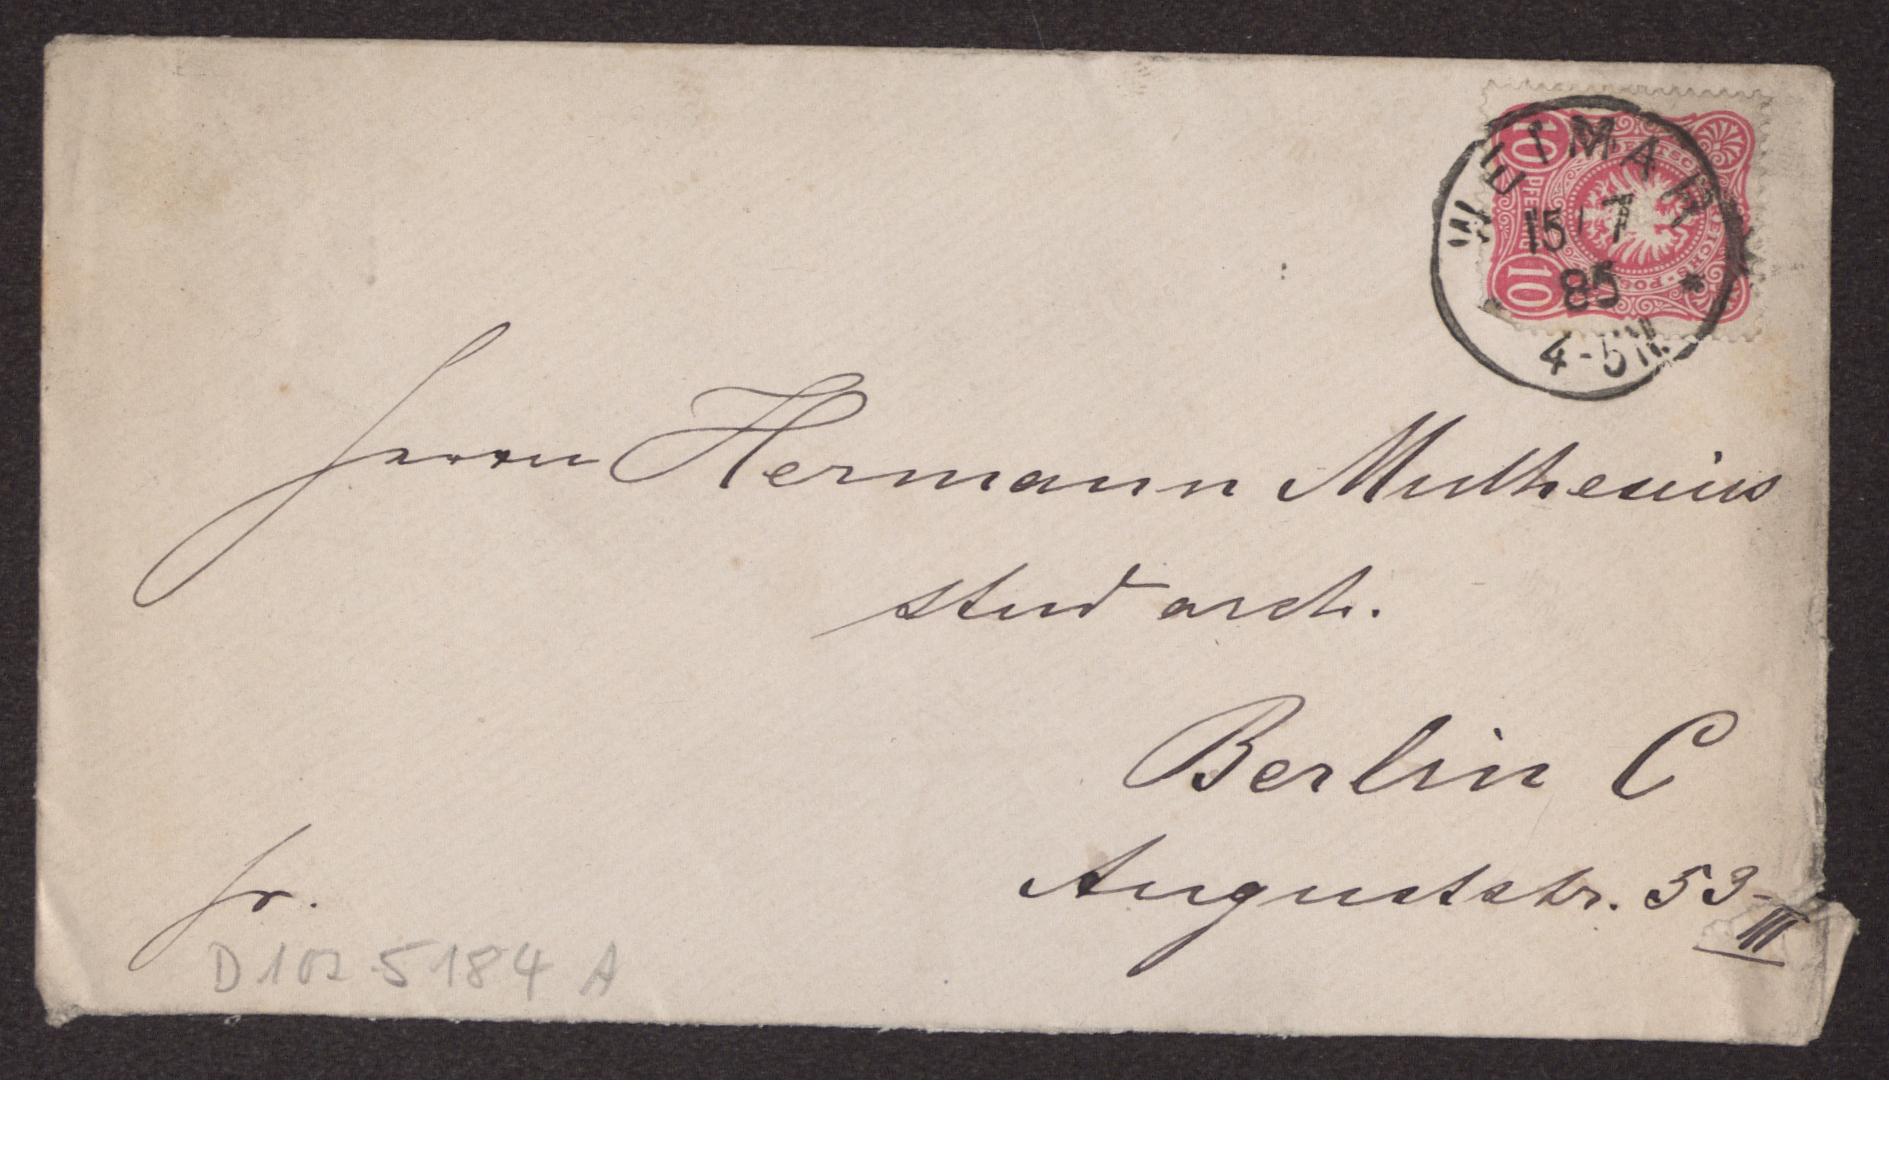 WEIMAR
15 7
85
4-5N.
10 PFENNIG 10
DEUTSCHE REICHS-POST
Herrn Hermann Muthesius
stud arch.
Berlin C
Auguststr. 53 III
fr.
D102 5184 A